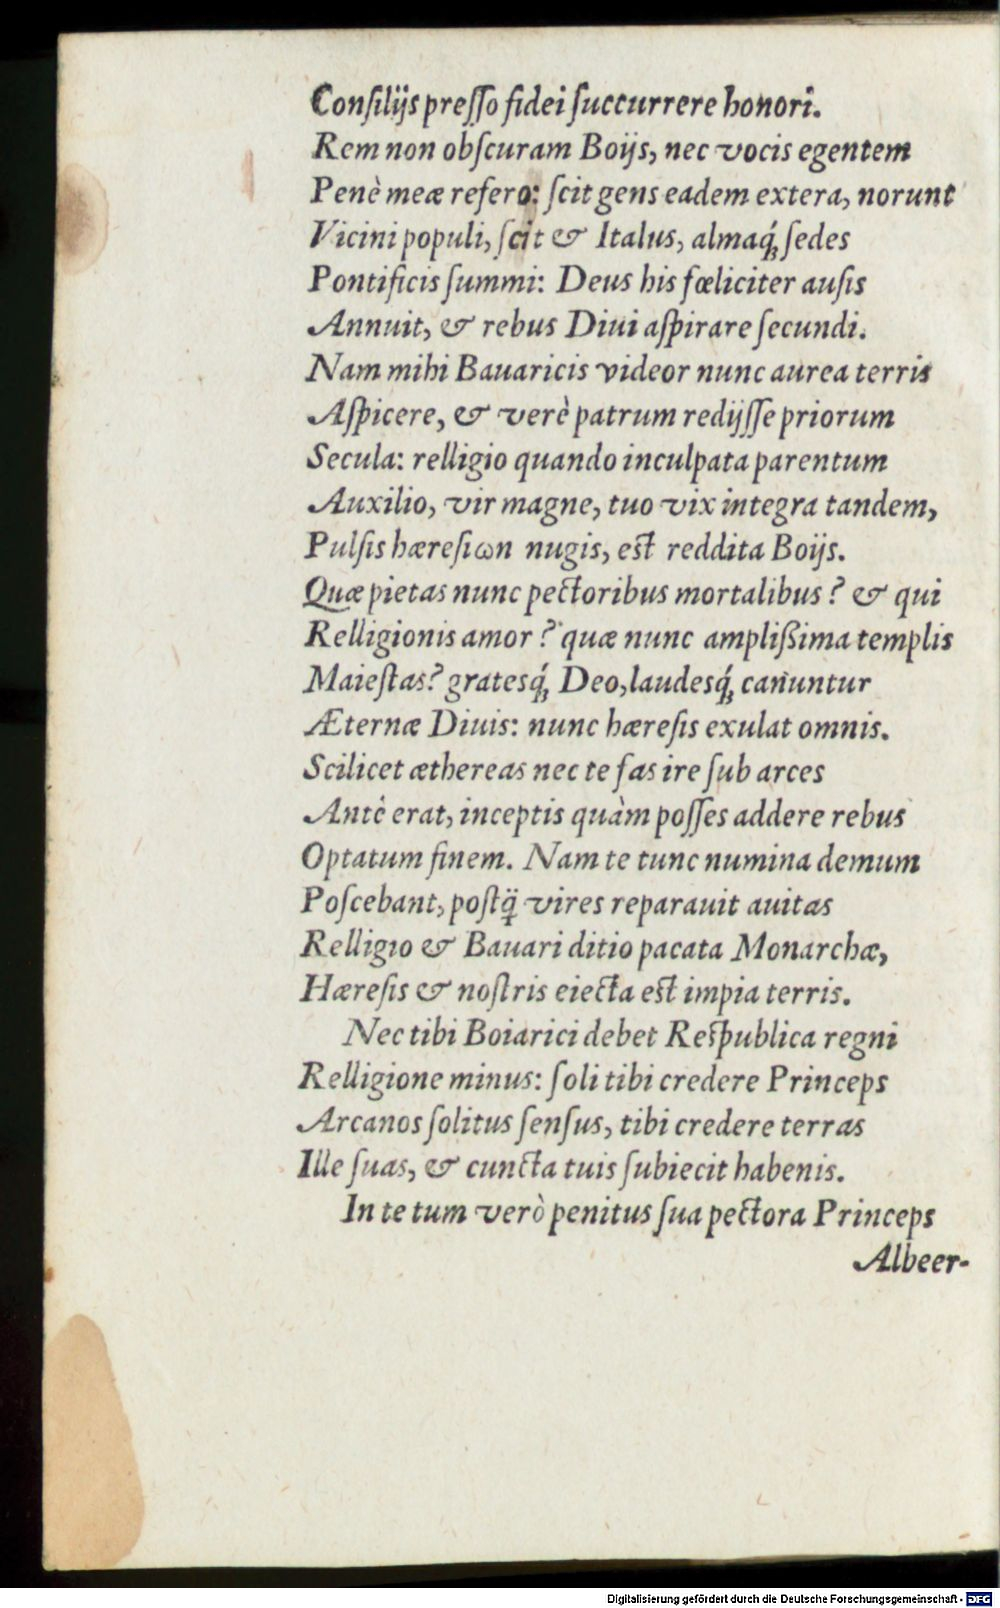 Conſilijs preſſo fidei ſuccurrere honori.
Rem non obſcuram Boijs, nec vocis egentem
Penè meæ refero: ſcit gens eadem extera, norunt
Vicini populi, ſcit & Italus, almaq́; ſedes
Pontificis ſummi: Deus his fœliciter auſis
Annuit, & rebus Diui aſpirare ſecundi.
Nam mihi Bauaricis videor nunc aurea terris
Aſpicere, & verè patrum redijſſe priorum
Secula: relligio quando inculpata parentum
Auxilio, vir magne, tuo vix integra tandem,
Pulſis hæreſiωn nugis, eſt reddita Boijs.
Quæ pietas nunc pectoribus mortalibus? & qui
Relligionis amor? quæ nunc amplißima templis
Maieſtas? gratesq́; Deo, laudesq́; canuntur
Æternæ Diuis: nunc hæreſis exulat omnis.
Scilicet æthereas nec te fas ire ſub arces
Antè erat, inceptis quàm poſſes addere rebus
Optatum finem. Nam te tunc numina demum
Poſcebant, poſtq̃ vires reparauit auitas
Relligio & Bauari ditio pacata Monarchæ,
Hæreſis & noſtris eiecta eſt impia terris.
Nec tibi Boiarici debet Reſpublica regni
Relligione minus: ſoli tibi credere Princeps
Arcanos ſolitus ſenſus, tibi credere terras
Ille ſuas, & cuncta tuis ſubiecit habenis.
In te tum verò penitus ſua pectora Princeps
Albeer-
Digitalisierung gefördert durch die Deutsche Forschungsgemeinschaft - DFG